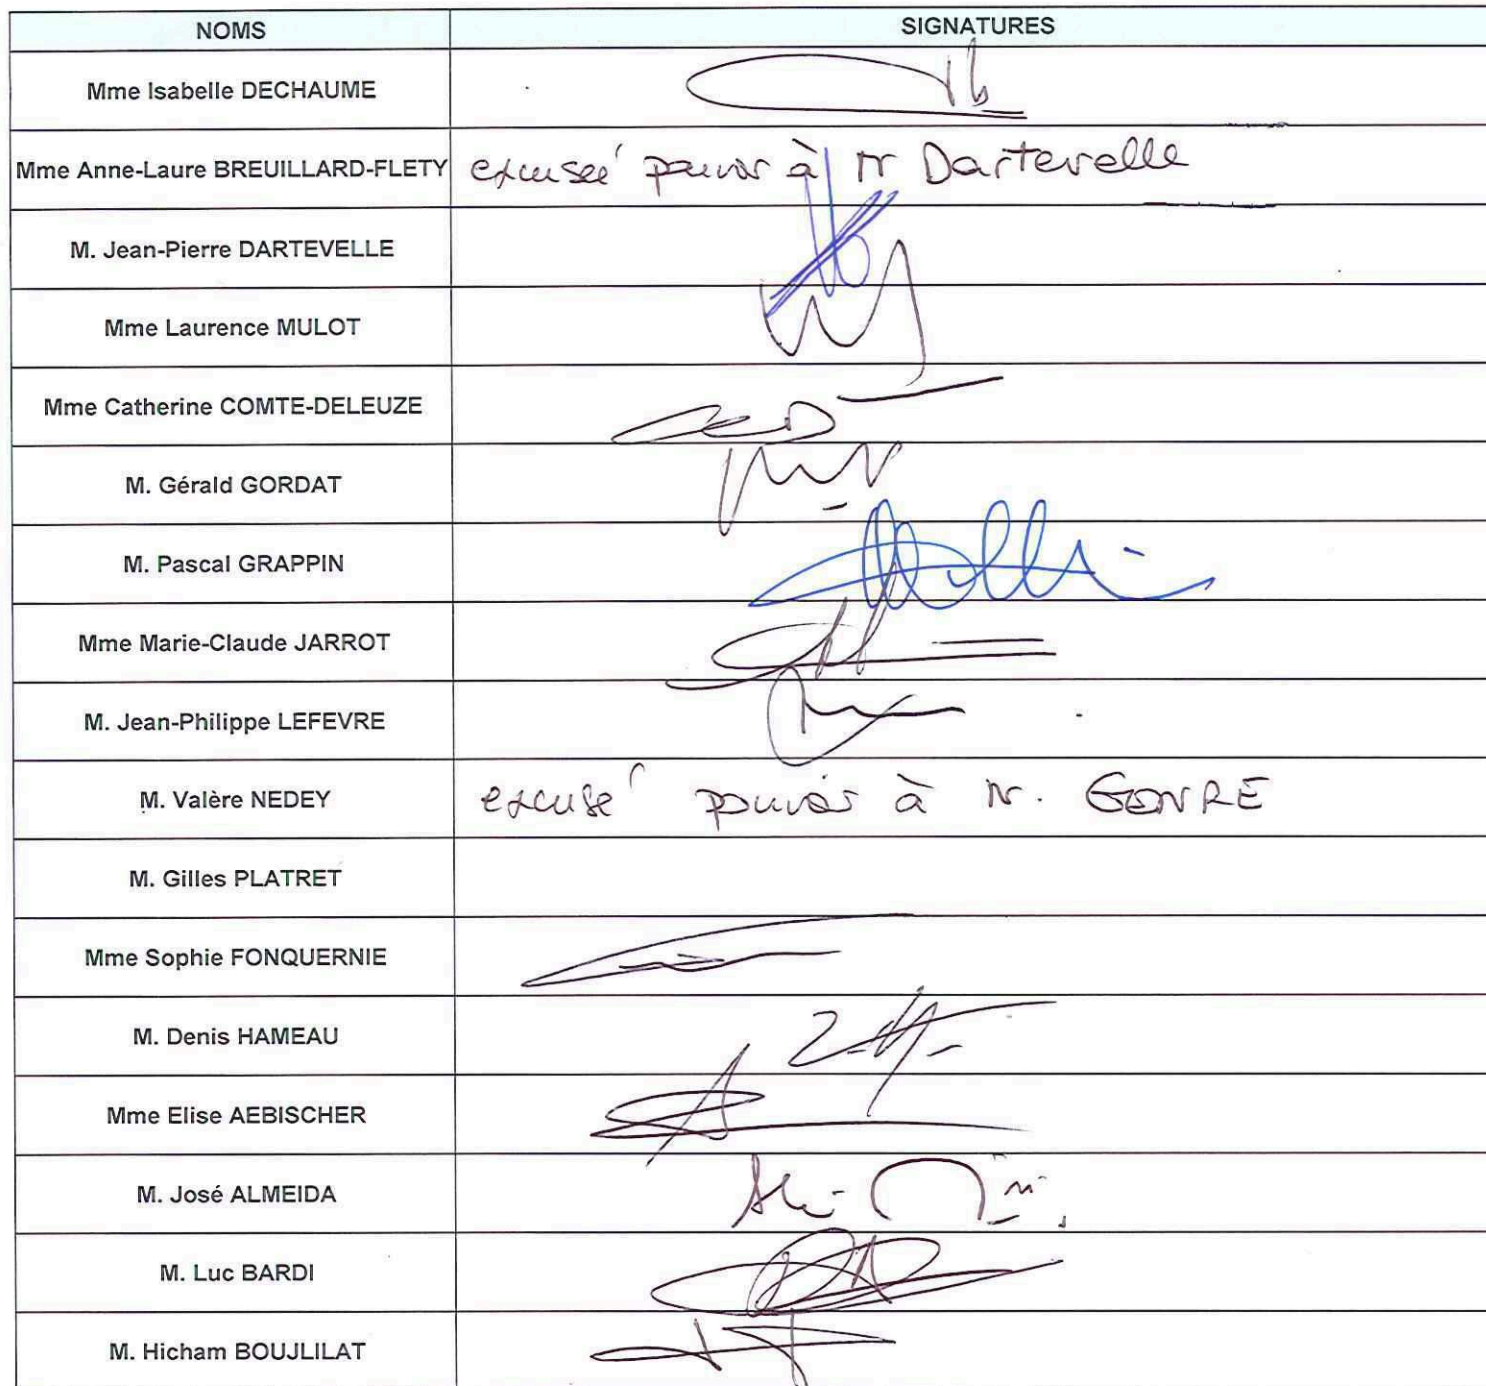 NOMS SIGNATURES
Mme Isabelle DECHAUME
Mme Anne-Laure BREUILLARD-FLETY excusée pouvoir à Mr Dartevelle
M. Jean-Pierre DARTEVELLE
Mme Laurence MULOT
Mme Catherine COMTE-DELEUZE
M. Gérald GORDAT
M. Pascal GRAPPIN
Mme Marie-Claude JARROT
M. Jean-Philippe LEFEVRE
M. Valère NEDEY excusé pouvoir à M. GONRE
M. Gilles PLATRET
Mme Sophie FONQUERNIE
M. Denis HAMEAU
Mme Elise AEBISCHER
M. José ALMEIDA
M. Luc BARDI
M. Hicham BOUJLILAT